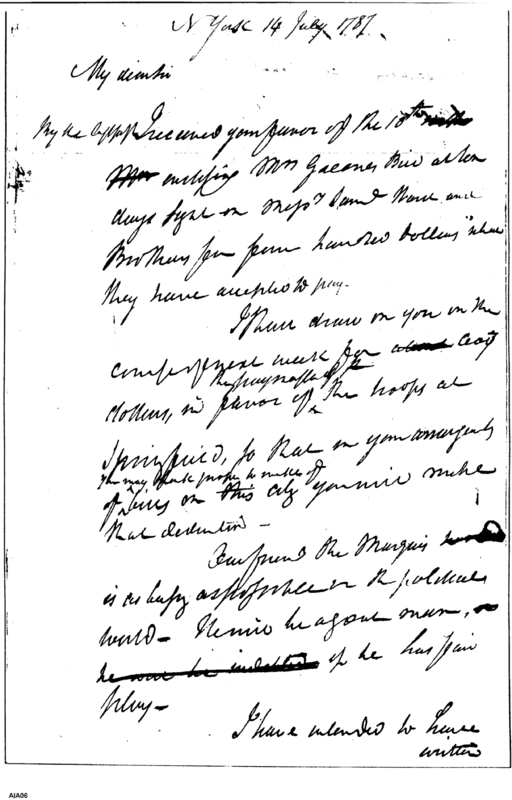 N York 14 July 1787.
My dear sir
By the last post I received your favor of the 10th
enclosing Mrs Greenes Bill at ten
days sight on Messrs Saml Ward and
Brothers for four hundred dollars which
they have accepted to pay.
I shall draw on you in the
course of next week for
dollars, in favor of the paymaster of the troops at
Springfield, so that in your arrangements
of you may think proper to make of bills on this city you will make
that deduction —
Our friend the Marquis
is as busy as possible in the political
world — He will be a great man,
if he has fair
play —
I have intended to have
written
AIA06